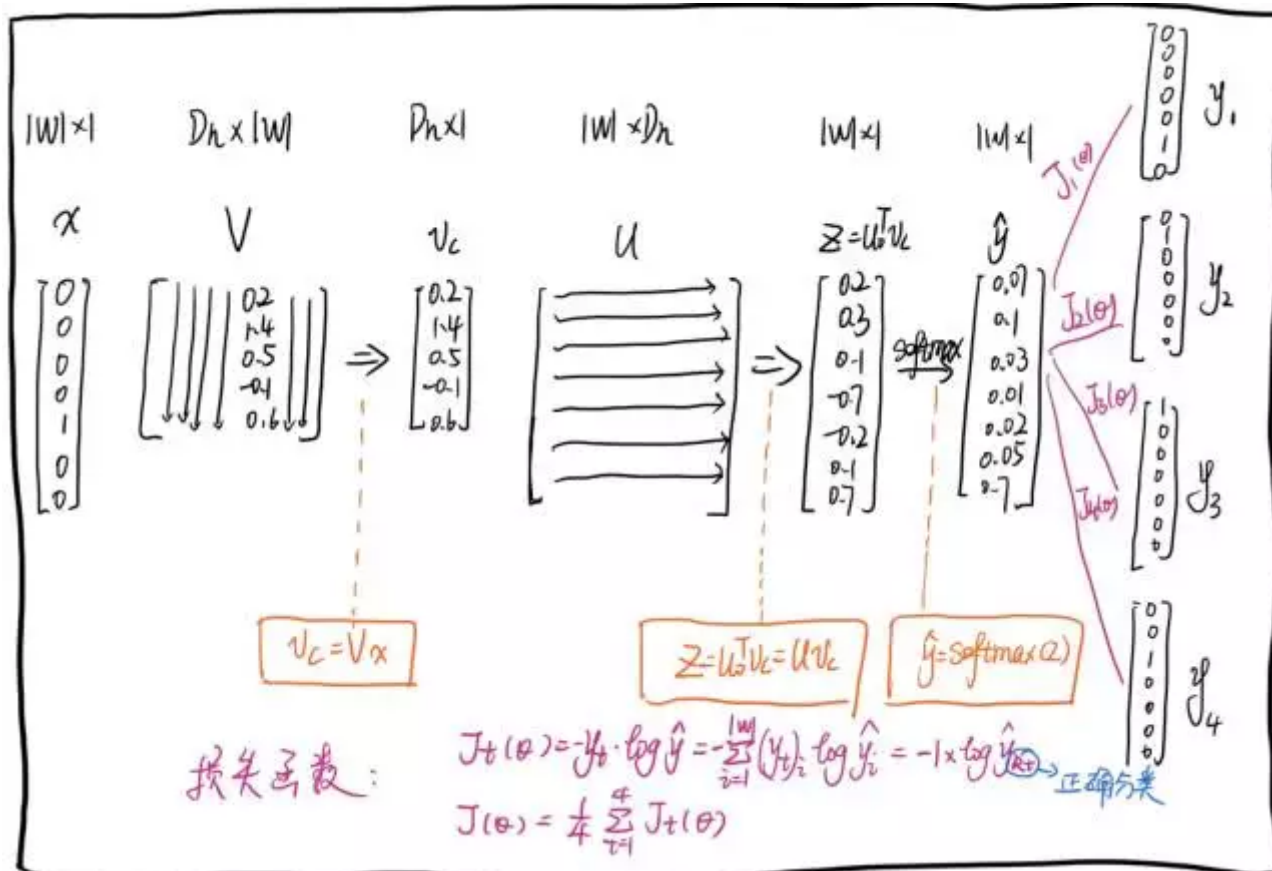 |W|×1 Dn×|W| Dn×1 |W|×Dn |W|×1 |W|×1
x V v_c U Z=U_o^T v_c ŷ
0 0 0 0 1 0 0
0.2 1.4 0.5 -0.1 0.6
⇒
0.2 1.4 0.5 -0.1 0.6
⇒
0.2 0.3 0.1 -0.7 -0.2 0.1 0.7
softmax
0.07 0.1 0.03 0.01 0.02 0.05 0.7
J_1(θ)
0 0 0 0 0 1 0 y_1
J_2(θ)
0 1 0 0 0 0 0 y_2
J_3(θ)
1 0 0 0 0 0 0 y_3
J_4(θ)
0 0 1 0 0 0 0 y_4
v_c = Vx
Z=U_o^T v_c=U v_c
ŷ=softmax(Z)
损失函数:
J_t(θ)=-y_t·log ŷ=-∑_{i=1}^{|W|}(y_t)_i log ŷ_i = -1×log ŷ → 正确分类
J(θ) = 1/4 ∑_{t=1}^{4} J_t(θ)